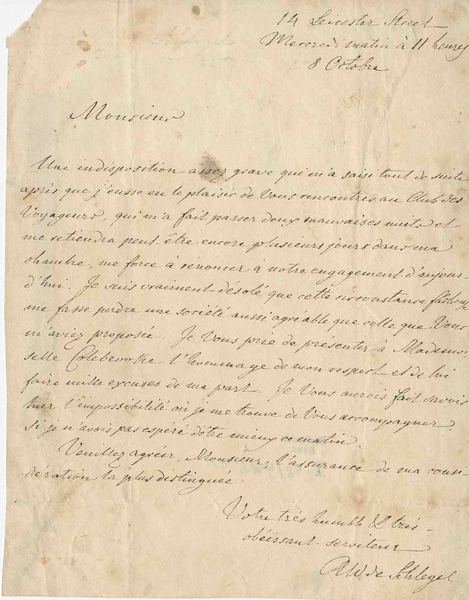 14 Leicester Street
Mercredi matin à 11 heures
8 Octobre
Monsieur
Une indisposition assez grave qui m'a saisi tout de suite
après que j'eusse eu le plaisir de Vous rencontrer au Club des
Voyageurs, qui m'a fait passer deux mauvaises nuits et
me retiendra peut être encore plusieurs jours dans ma
chambre, me force à renoncer à notre engagement d'aujour-
d'hui. Je suis vraiment désolé que cette circonstance fâcheuse
me fasse perdre une société aussi agréable que celle que Vous
m'aviez proposée. Je Vous prie de présenter à Mademoi-
selle Colebrooke l'hommage de mon respect et de lui
faire mille excuses de ma part. Je Vous aurois fait savoir
hier l'impossibilité où je me trouve de Vous accompagner,
si je n'avais pas espéré d'être mieux ce matin.
Veuillez agréer, Monsieur, l'assurance de ma consi-
dération la plus distinguée.
Votre très humble & très-
obéissant serviteur
AW de Schlegel